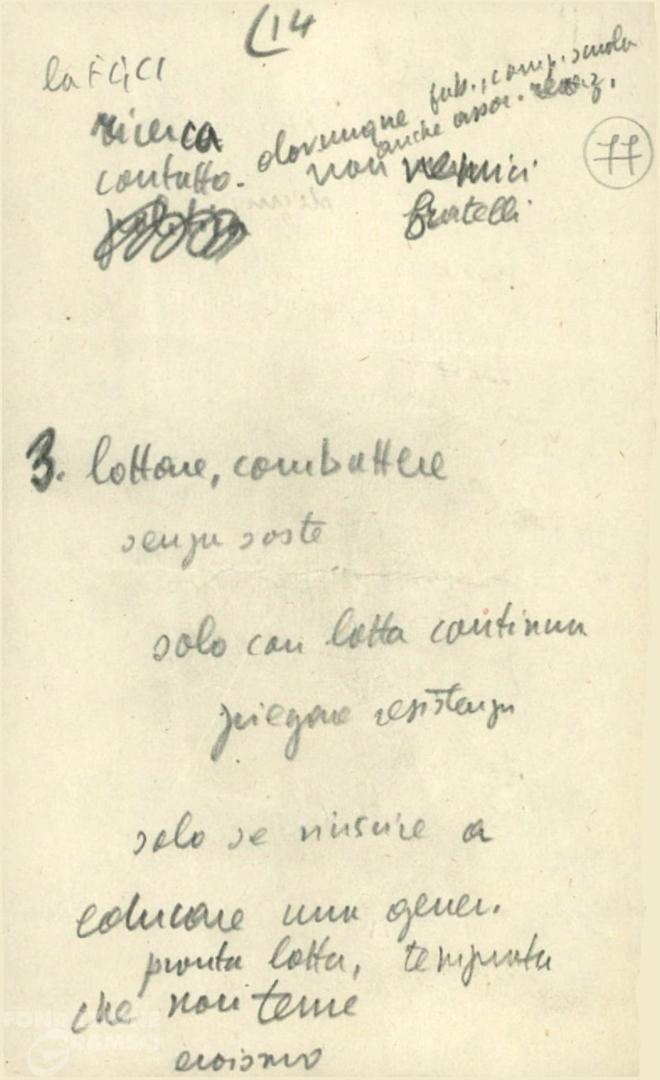 (14
la FGCI
ricerca dovunque fab., camp. scuola
anche assor. reaz.
contatto. non nemici
fratelli
77
3. lottare, combattere
senza soste
solo con lotta continua
piegare resistenza
solo se riuscire a
educare una gener.
pronta lotta, temprata
che non teme
eroismo